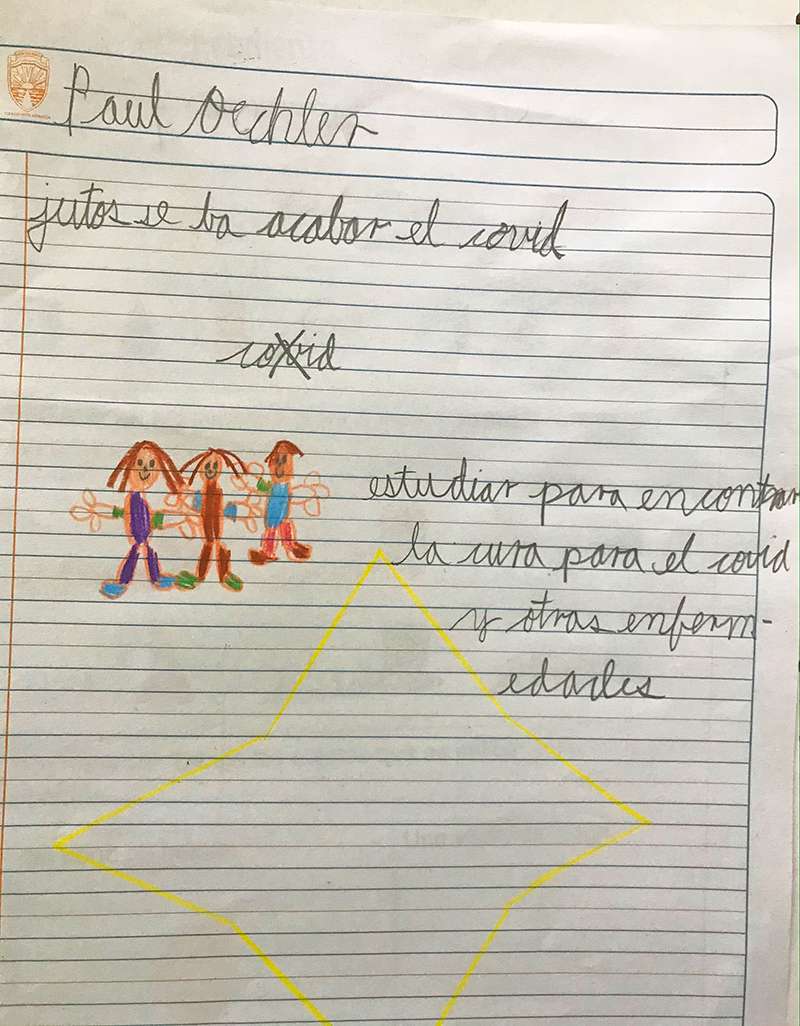 Paul Oechler
jutos se ba acabar el covid
covid
estudiar para encontrar
la cura para el covid
y otras enferm-
edades